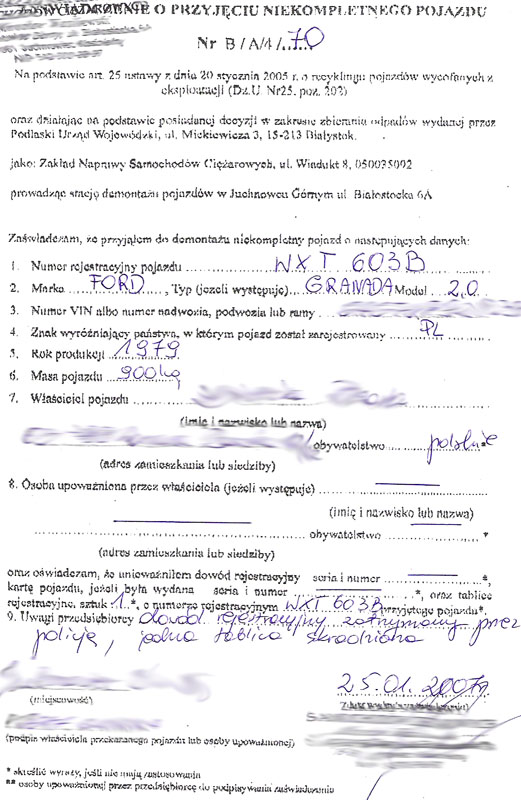 ZAŚWIADCZENIE O PRZYJĘCIU NIEKOMPLETNEGO POJAZDU
Nr B / A/4 /..70
Na podstawie art. 25 ustawy z dnia 20 stycznia 2005r. o recyklingu pojazdów wycofanych z
eksploatacji (Dz.U. Nr25. poz. 202)
oraz działając na podstawie posiadanej decyzji w zakresie zbierania odpadów wydanej przez
Podlaski Urząd Wojewódzki, ul. Mickiewicza 3, 15-213 Białystok.
jako: Zakład Naprawy Samochodów Ciężarowych, ul. Wiadukt 8, 050035002
prowadząc stację demontażu pojazdów w Juchnowcu Górnym ul Białostocka 6A
Zaświadczam, że przyjąłem do demontażu niekompletny pojazd o następujących danych:
1. Numer rejestracyjny pojazdu WXT 603B
2. Marka FORD , Typ (jeżeli występuje) GRANADA Model 2,0
3. Numer VIN albo numer nadwozia, podwozia lub ramy
4. Znak wyróżniający państwa, w którym pojazd został zarejestrowany PL
5. Rok produkcji 1979
6. Masa pojazdu 900kg
7. Właściciel pojazdu
(imię i nazwisko lub nazwa)
obywatelstwo polskie
(adres zamieszkania lub siedziby)
8. Osoba upoważniona przez właściciela (jeżeli występuje)
(imię i nazwisko lub nazwa)
obywatelstwo *
(adres zamieszkania lub siedziby)
oraz oświadczam, że unieważniłem dowód rejestracyjny seria i numer *,
kartę pojazdu, jeżeli była wydana seria i numer *, oraz tablice
rejestracyjne, sztuk 1 *, o numerze rejestracyjnym WXT 603B przyjętego pojazdu*.
9. Uwagi przedsiębiorcy dowód rejestracyjny zatrzymany przez
policję, jedna tablica skradziona
25.01.2007r
(miejscowość)
(podpis właściciela przekazanego pojazdu lub osoby upoważnionej)
* skreślić wyrazy, jeśli nie mają zastosowania
** osoby upoważnionej przez przedsiębiorcę do podpisywania zaświadczenia